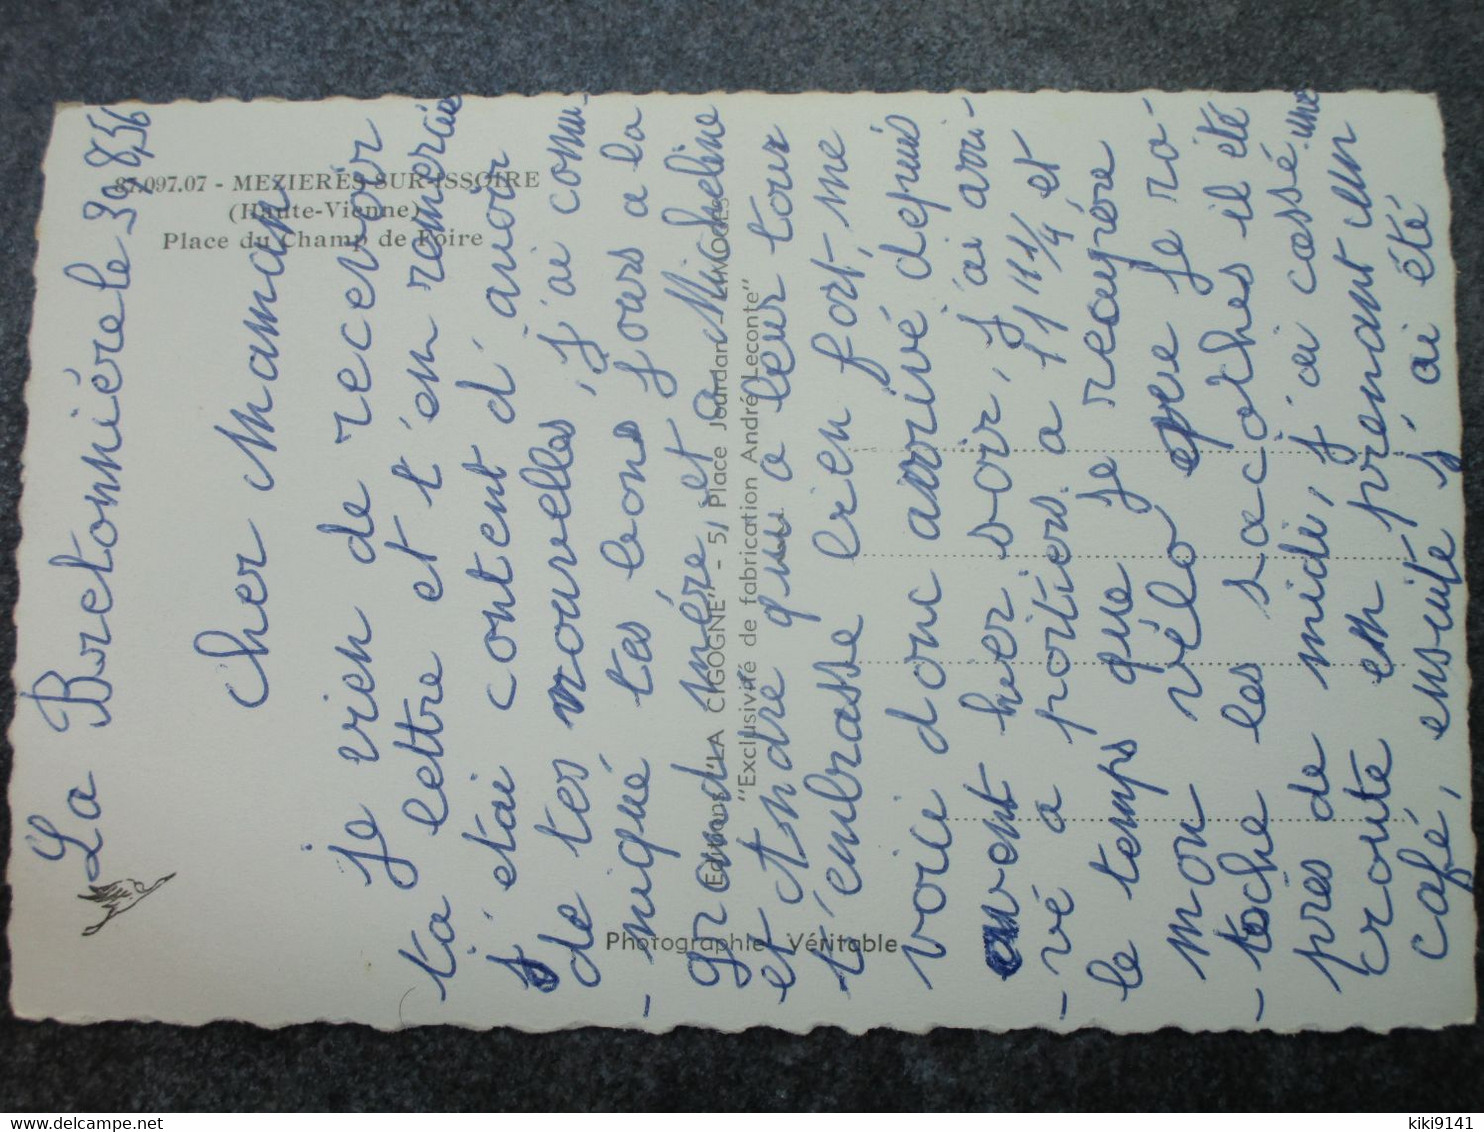 87.097.07 - MEZIERES-SUR-ISSOIRE
(Haute-Vienne)
Place du Champ de Foire
Editions "LA CIGOGNE" - 5, Place Jourdan - LIMOGES
"Exclusivité de fabrication André Leconte"
Photographie Véritable
La Bretonnière le 30,8,56
Cher Maman
Je vien de recevoir
ta lettre et t'en remercie
j'étai content d'avoir
de tes nouvelles, j'ai commu-
-niqué tes bons jours a la
Grand mère et a Micheline
et André qui a leur tour
t'embrasse bien fort, me
voici donc arrivé depuis
avent hier soir, j'ai arri-
-vé a poitiers a 11h 1/4 et
le temps que je recupère
mon vélo que je ra-
-tache les sacoches il été
pres de midi, j'ai cassé une
croute en prenant un
café, ensuite j'ai été
kiki9141